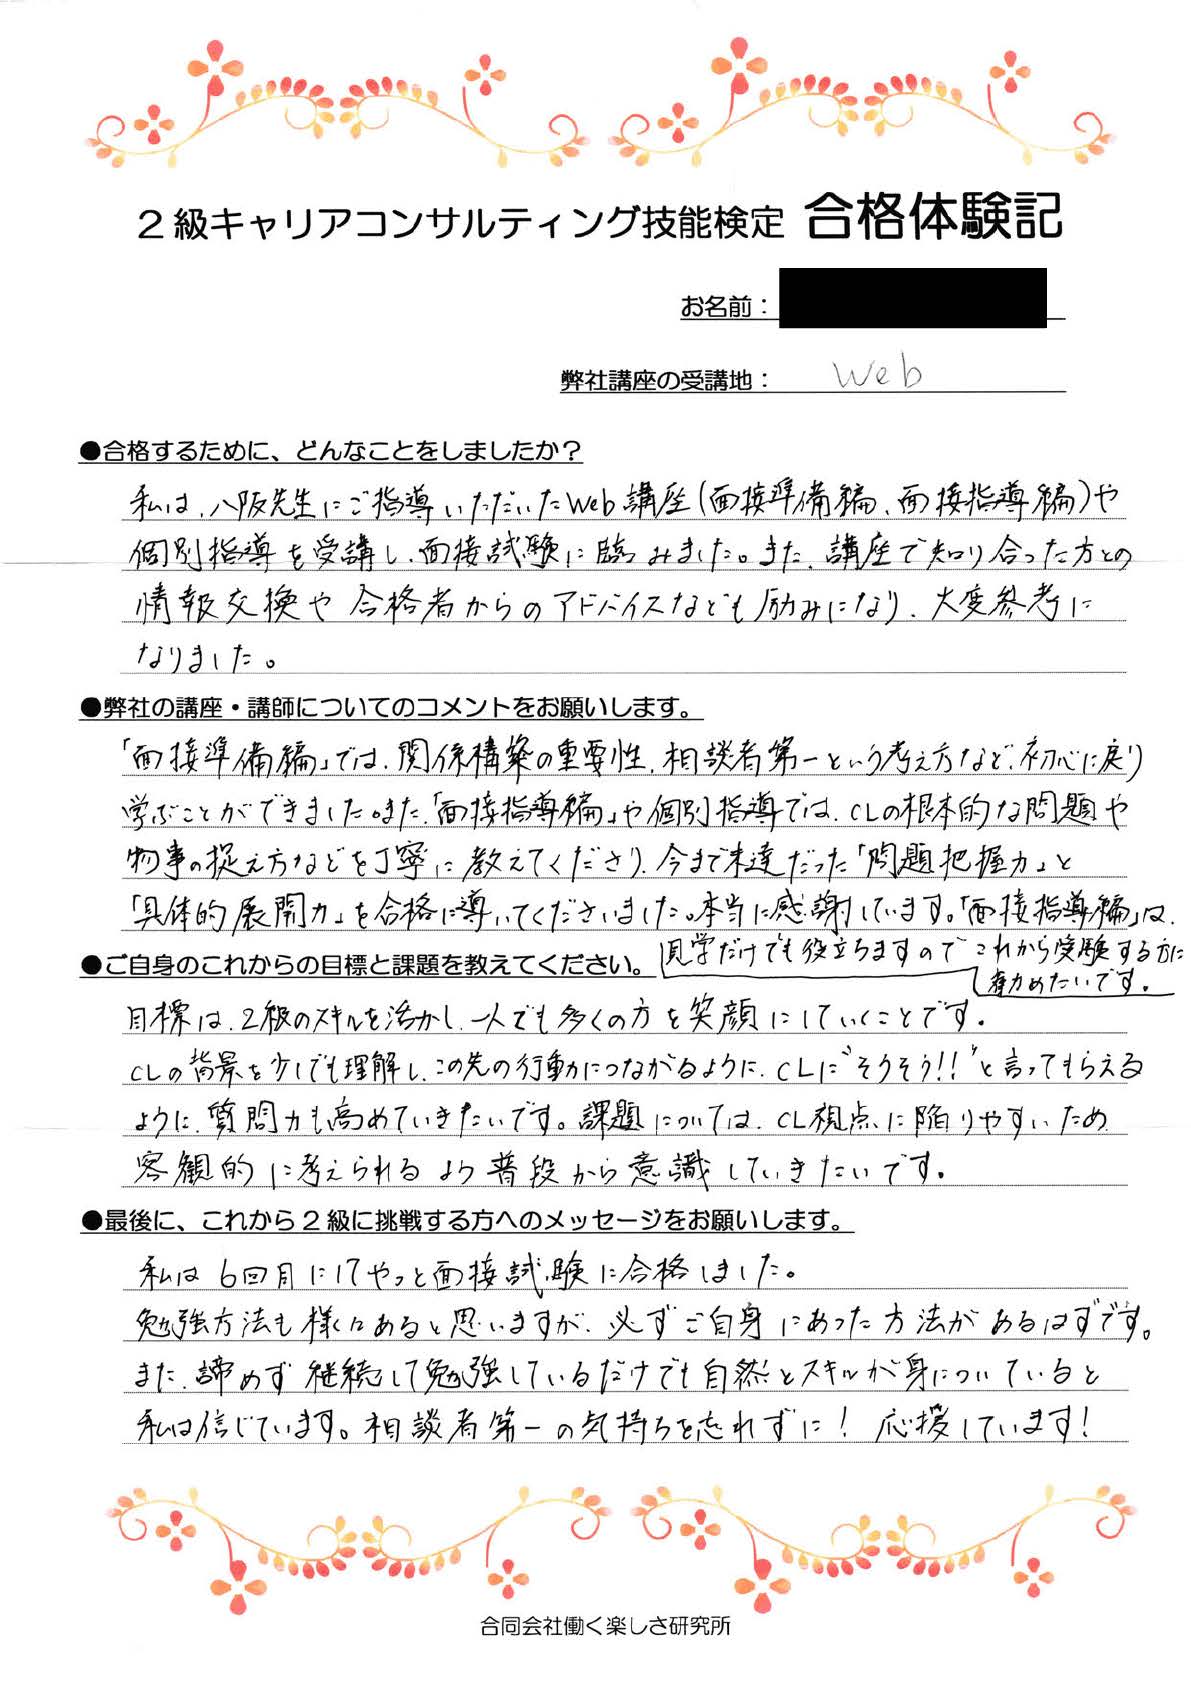 2級キャリアコンサルティング技能検定 合格体験記
お名前：
弊社講座の受講地： Web
●合格するために、どんなことをしましたか？
私は、八阪先生にご指導いただいたWeb講座(面接準備編、面接指導編)や
個別指導を受講し、面接試験に臨みました。また、講座で知り合った方との
情報交換や合格者からのアドバイスなども励みになり、大変参考に
なりました。
●弊社の講座・講師についてのコメントをお願いします。
「面接準備編」では、関係構築の重要性、相談者第一という考え方など、初心に戻り
学ぶことができました。また、「面接指導編」や個別指導では、CLの根本的な問題や
物事の捉え方などを丁寧に教えてくださり、今まで未達だった「問題把握力」と
「具体的展開力」を合格に導いてくださいました。本当に感謝しています。「面接指導編」は、
見学だけでも役立ちますので これから受験する方に
●ご自身のこれからの目標と課題を教えてください。
めたいです。
目標は、2級のスキルを活かし、一人でも多くの方を笑顔にしていくことです。
CLの背景を少しでも理解し、この先の行動につながるように、CLに"そうそう!!"と言ってもらえる
ように、質問力も高めていきたいです。課題については、CL視点に陥りやすいため
客観的に考えられるよう普段から意識していきたいです。
●最後に、これから2級に挑戦する方へのメッセージをお願いします。
私は6回目にしてやっと面接試験に合格しました。
勉強方法も様々あると思いますが、必ずご自身にあった方法があるはずです。
また、諦めず継続して勉強しているだけでも自然とスキルが身についていると
私は信じています。相談者第一の気持ちを忘れずに！応援しています！
合同会社働く楽しさ研究所